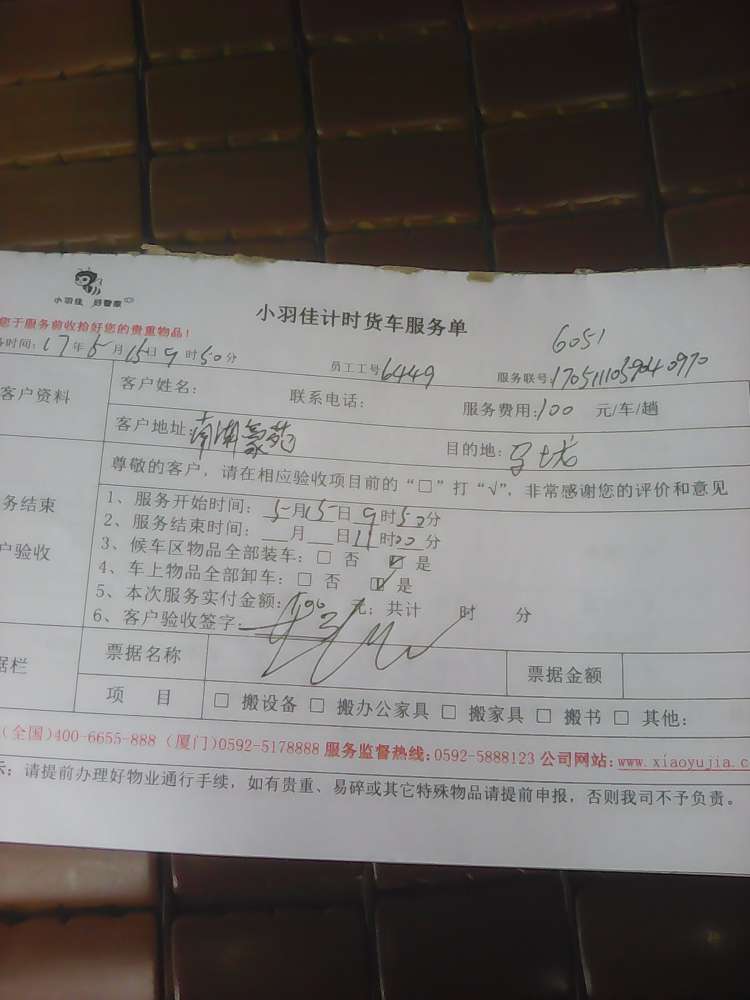 小羽佳 好管家
小羽佳计时货车服务单
您于服务前收拾好您的贵重物品！
6051
务时间：17年5月15日9时50分 员工工号6449 服务联号：
客户资料 客户姓名： 联系电话： 服务费用：100 元/车/趟
客户地址：南湖豪苑 目的地：
尊敬的客户，请在相应验收项目前的“□”打“√”，非常感谢您的评价和意见
务结束
户验收
1、服务开始时间：5月15日9时50分
2、服务结束时间：__月__日11时00分
3、候车区物品全部装车：□ 否 ☑ 是
4、车上物品全部卸车：□ 否 ☑ 是
5、本次服务实付金额： 元；共计 时 分
6、客户验收签字：
据栏 票据名称 票据金额
项 目 □ 搬设备 □ 搬办公家具 □ 搬家具 □ 搬书 □ 其他：
(全国)400-6655-888 (厦门)0592-5178888 服务监督热线：0592-5888123 公司网站：www.xiaoyujia.c
示：请提前办理好物业通行手续，如有贵重、易碎或其它特殊物品请提前申报，否则我司不予负责。